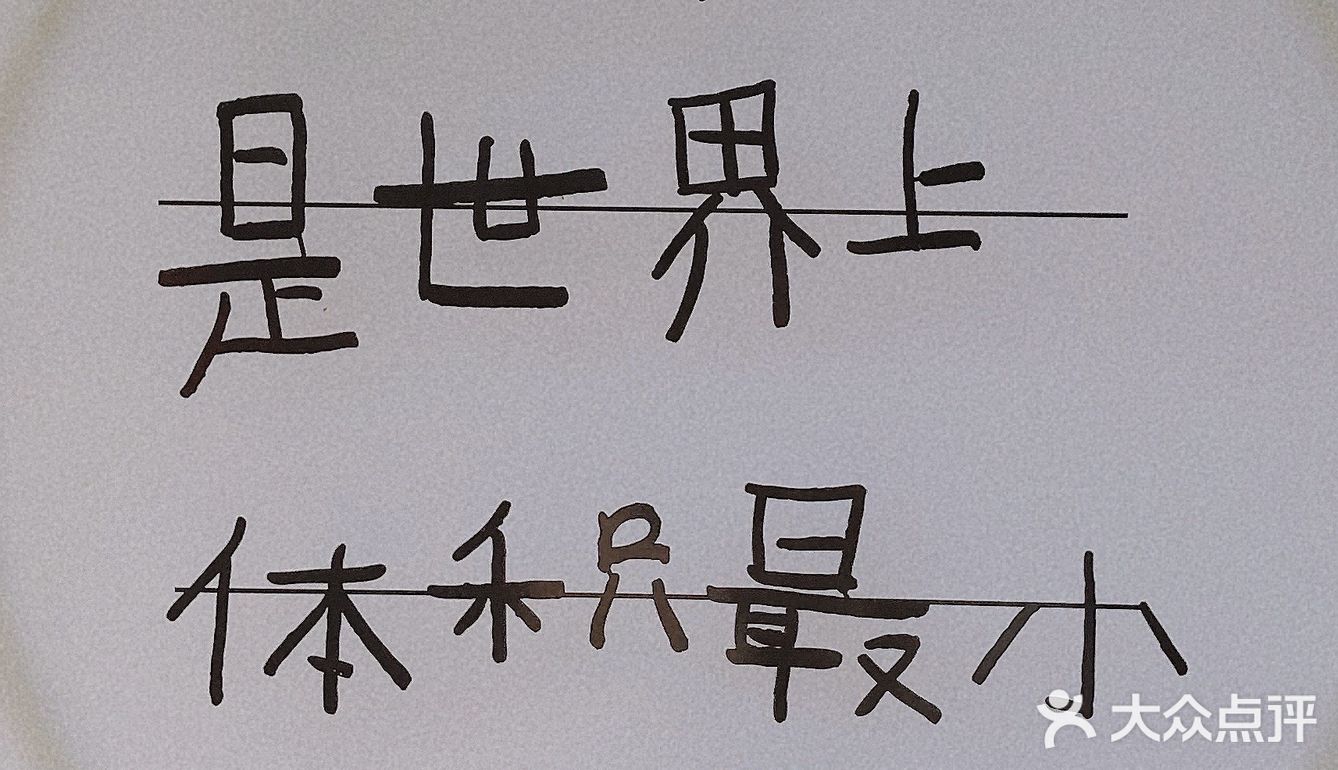 是世界上
体积最小
大众点评